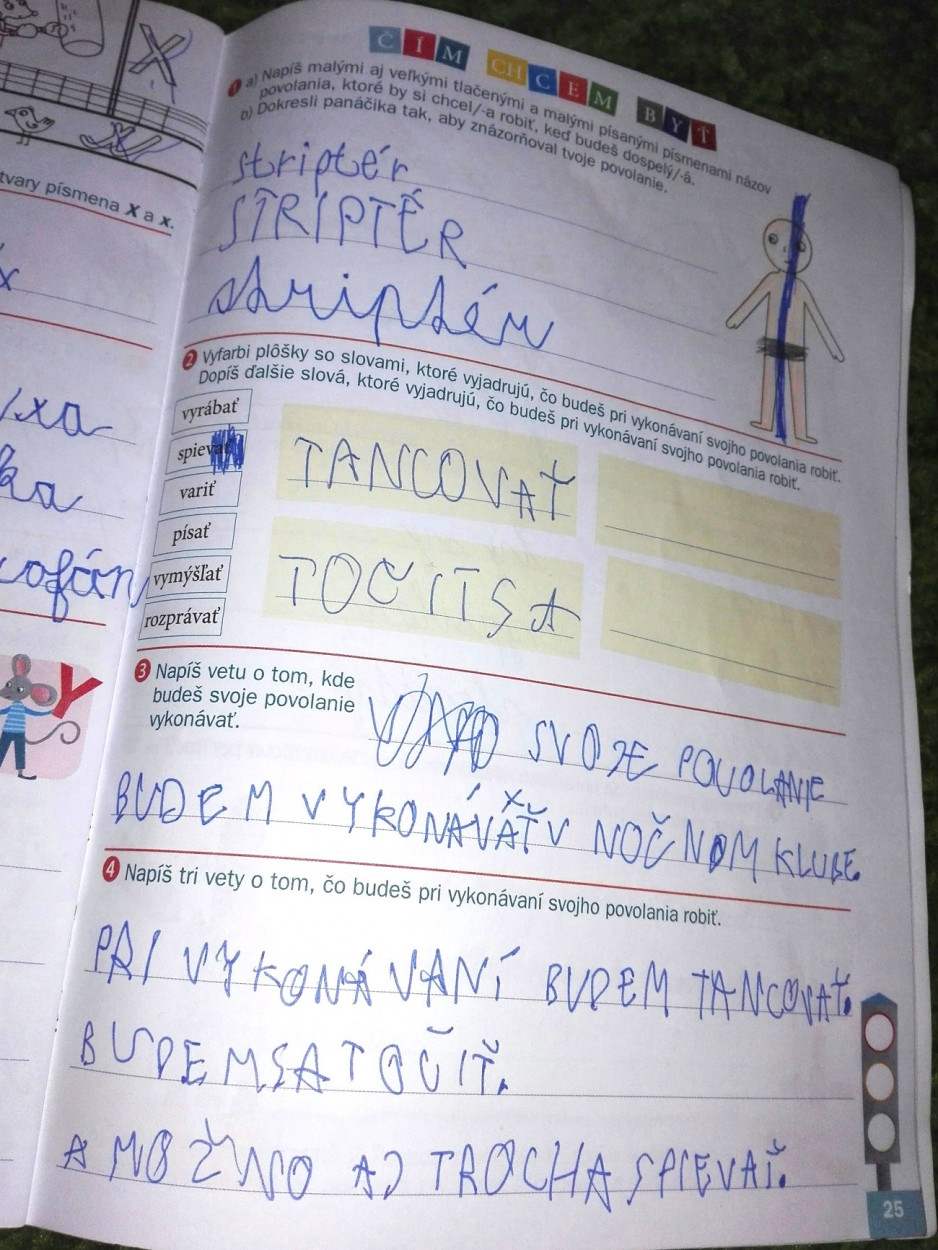 ČÍM CHCEM BYŤ
1 a) Napíš malými aj veľkými tlačenými a malými písanými písmenami názov
povolania, ktoré by si chcel/-a robiť, keď budeš dospelý/-á.
b) Dokresli panáčika tak, aby znázorňoval tvoje povolanie.
striptér
STRIPTÉR
striptér
2 Vyfarbi plôšky so slovami, ktoré vyjadrujú, čo budeš pri vykonávaní svojho povolania robiť.
Dopíš ďalšie slová, ktoré vyjadrujú, čo budeš pri vykonávaní svojho povolania robiť.
vyrábať
spievať
variť
písať
vymýšľať
rozprávať
TANCOVAŤ
TOČIŤ SA
3 Napíš vetu o tom, kde
budeš svoje povolanie
vykonávať.
SVOJE POVOLANIE
BUDEM VYKONÁVAŤ V NOČNOM KLUBE.
4 Napíš tri vety o tom, čo budeš pri vykonávaní svojho povolania robiť.
PRI VYKONÁVANÍ BUDEM TANCOVAŤ.
BUDEM SA TOČIŤ.
A MOŽNO AJ TROCHA SPIEVAŤ.
25
tvary písmena X a x.
x
xa
ka
Y